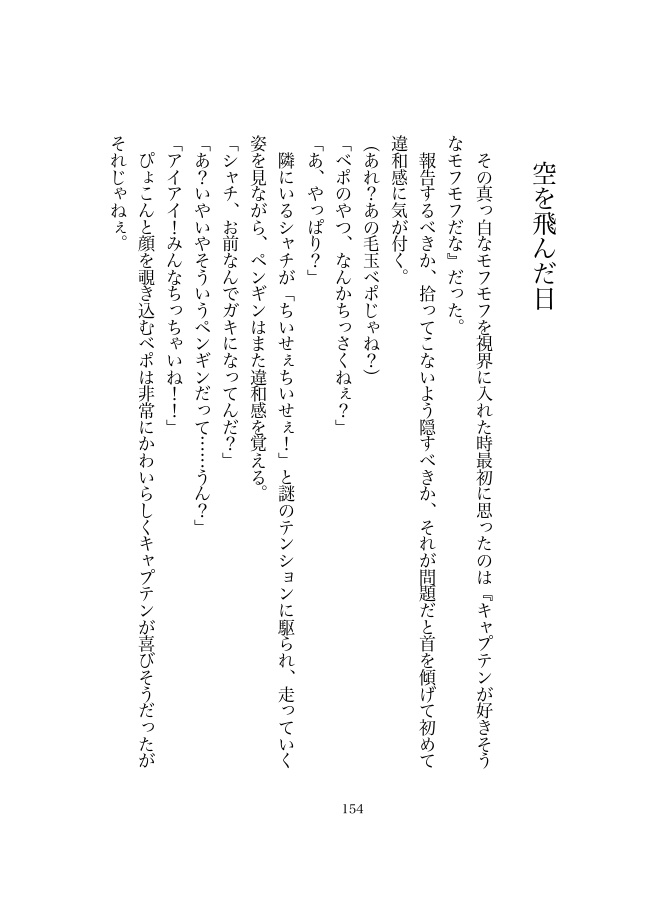 空を飛んだ日
　その真っ白なモフモフを視界に入れた時最初に思ったのは『キャプテンが好きそう
なモフモフだな』だった。
　報告するべきか、拾ってこないよう隠すべきか、それが問題だと首を傾げて初めて
違和感に気が付く。
（あれ？あの毛玉ベポじゃね？）
「ベポのやつ、なんかちっさくねぇ？」
「あ、やっぱり？」
　隣にいるシャチが「ちいせぇちいせぇ！」と謎のテンションに駆られ、走っていく
姿を見ながら、ペンギンはまた違和感を覚える。
「シャチ、お前なんでガキになってんだ？」
「あ？いやいやそういうペンギンだって……うん？」
「アイアイ！みんなちっちゃいね！！」
　ぴょこんと顔を覗き込むベポは非常にかわいらしくキャプテンが喜びそうだったが
それじゃねぇ。
154